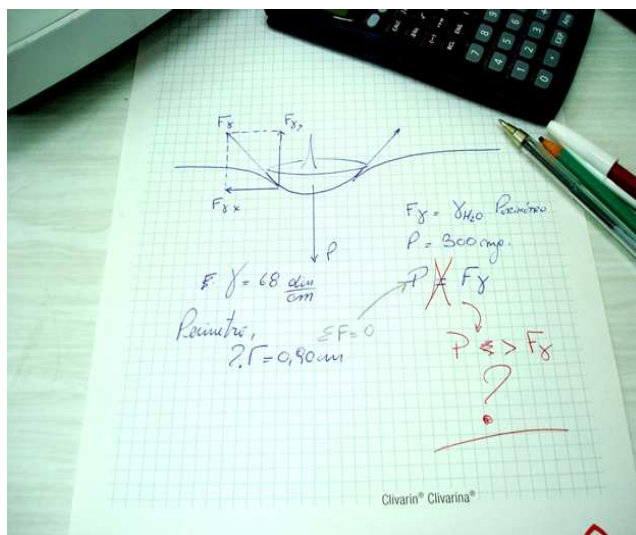 Fγ
Fγy
Fγx
P
Fγ = γH₂O Perímetro
P = 300 mp.
γ = 68 din/cm
P = Fγ
ΣF=0
Perímetro,
2.r = 0,90 cm
P < > Fγ
?
Clivarin® Clivarina®